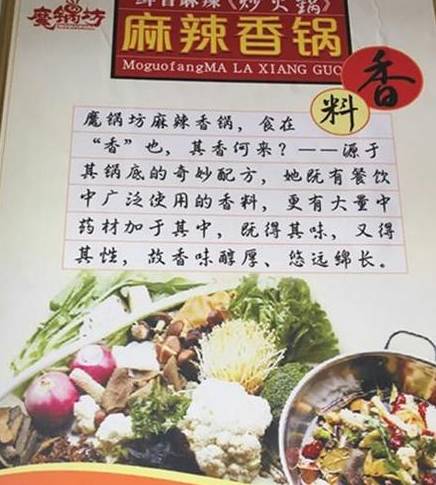 魔锅坊
鲜香麻辣《炒火锅》
麻辣香锅
MoguofangMA LA XIANG GUO
香
料
魔锅坊麻辣香锅，食在
“香”也，其香何来？——源于
其锅底的奇妙配方，她既有餐饮
中广泛使用的香料，更有大量中
药材加于其中，既得其味，又得
其性，故香味醇厚、悠远绵长。